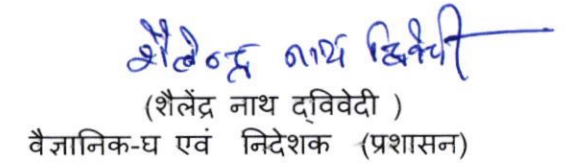 शैलेन्द्र नाथ द्विवेदी
(शैलेंद्र नाथ द्विवेदी )
वैज्ञानिक-घ एवं निदेशक (प्रशासन)